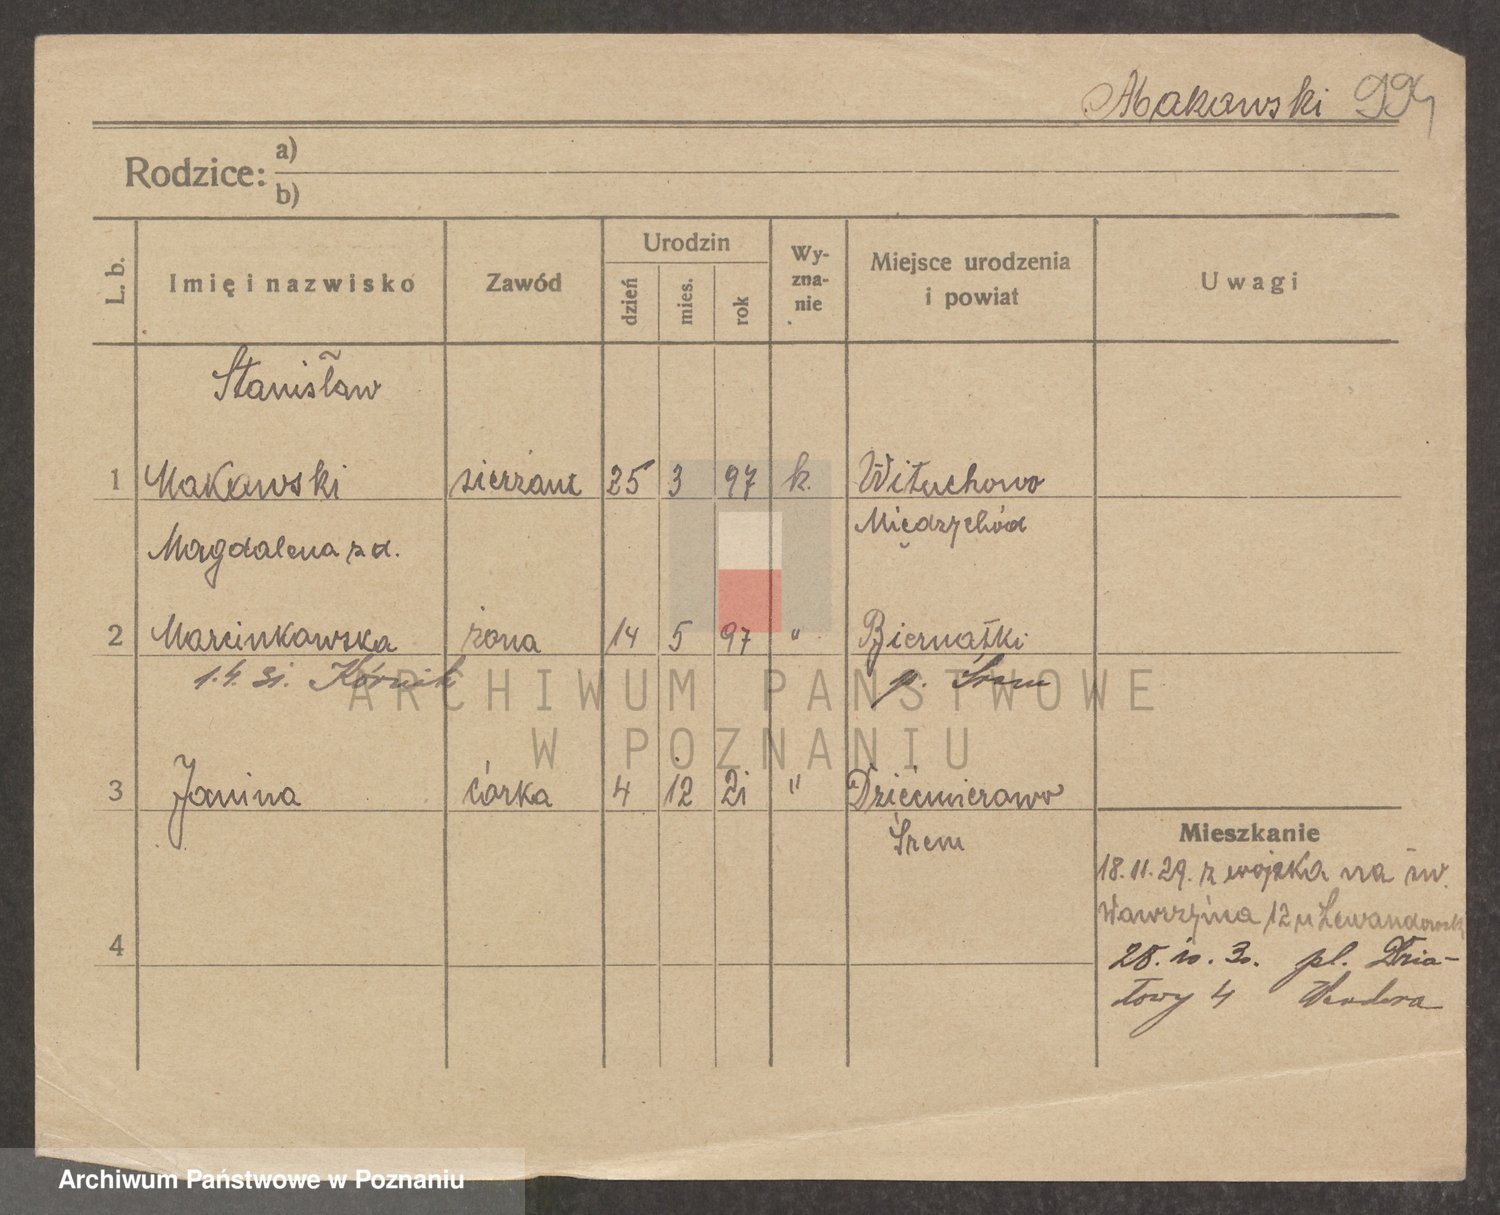 Makowski 994
Rodzice: a)
b)
L. b. Imię i nazwisko Zawód Urodzin dzień mies. rok Wy-zna-nie Miejsce urodzenia i powiat Uwagi
Stanisław
1 Makowski sierżant 25 3 97 k. Wituchowo
Międzychód
Magdalena z d.
2 Marcinkowska żona 14 5 97 " Biernatki
1.4.31. Kórnik p. Śrem
3 Janina córka 4 12 21 " Dziećmierowo
Śrem
Mieszkanie
18.11.29. z wojska na św.
Wawrzyńca 12 u Lewandowsk
4
28.10.30. pl. Dzia-
łowy 4
ARCHIWUM PAŃSTWOWE
W POZNANIU
Archiwum Państwowe w Poznaniu